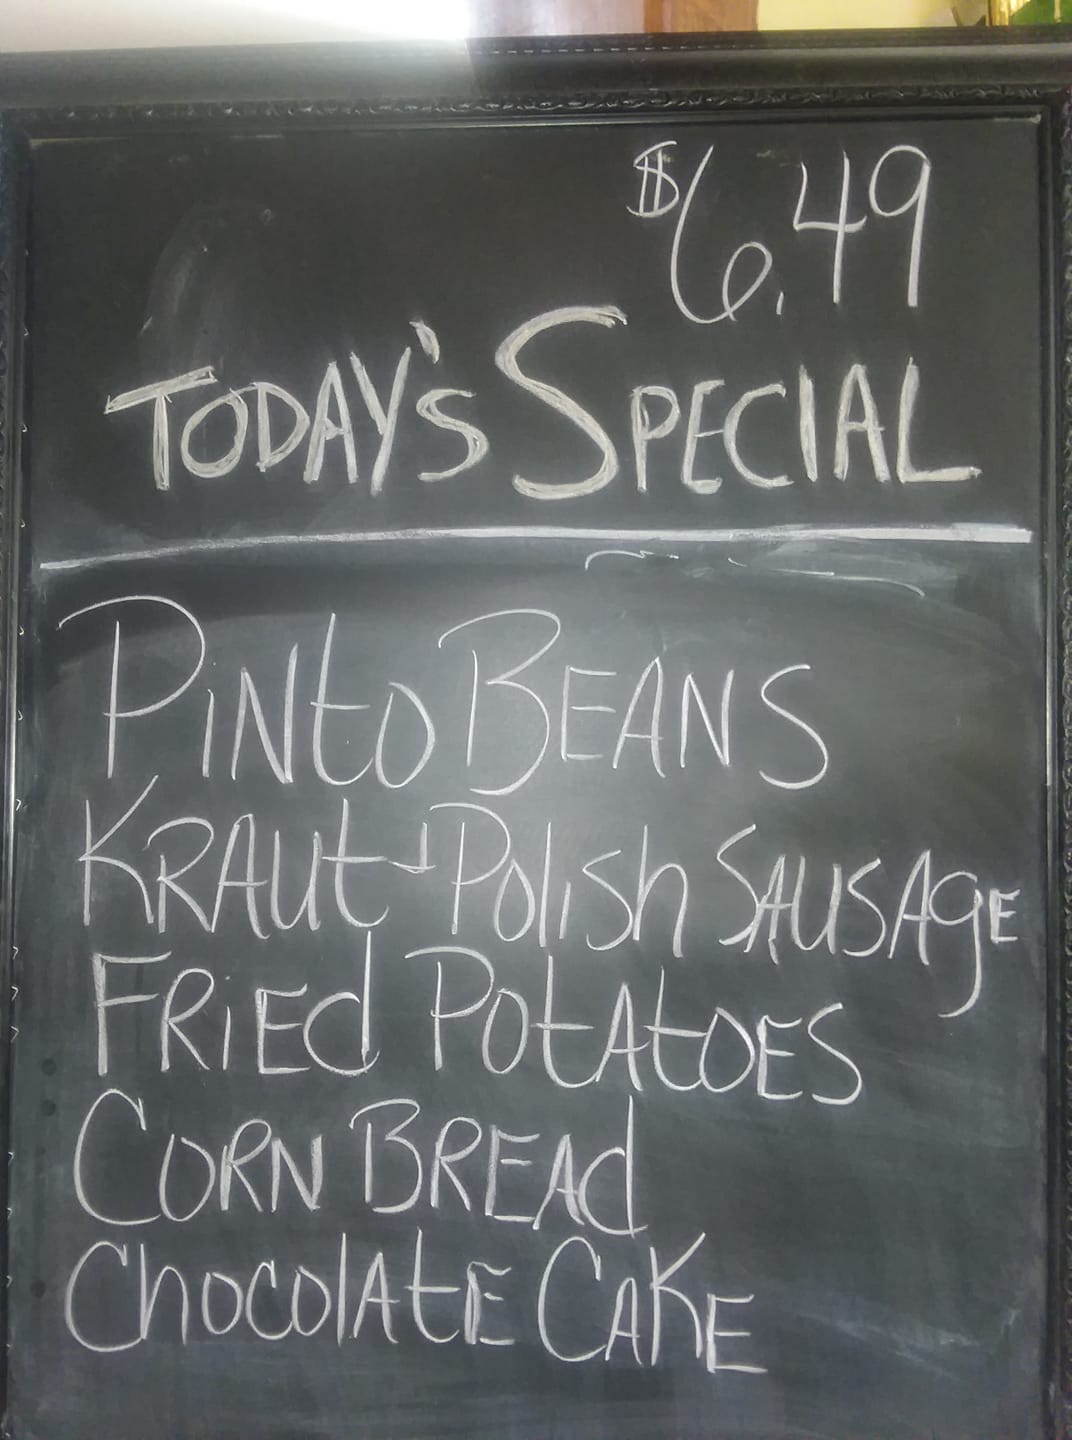 $6.49
TODAY'S SPECIAL
PiNtO BEANS
KRAUt + POlish SAUSAgE
FRiEd POtAtOES
CORN BREAd
ChOCOlAtE CAKE